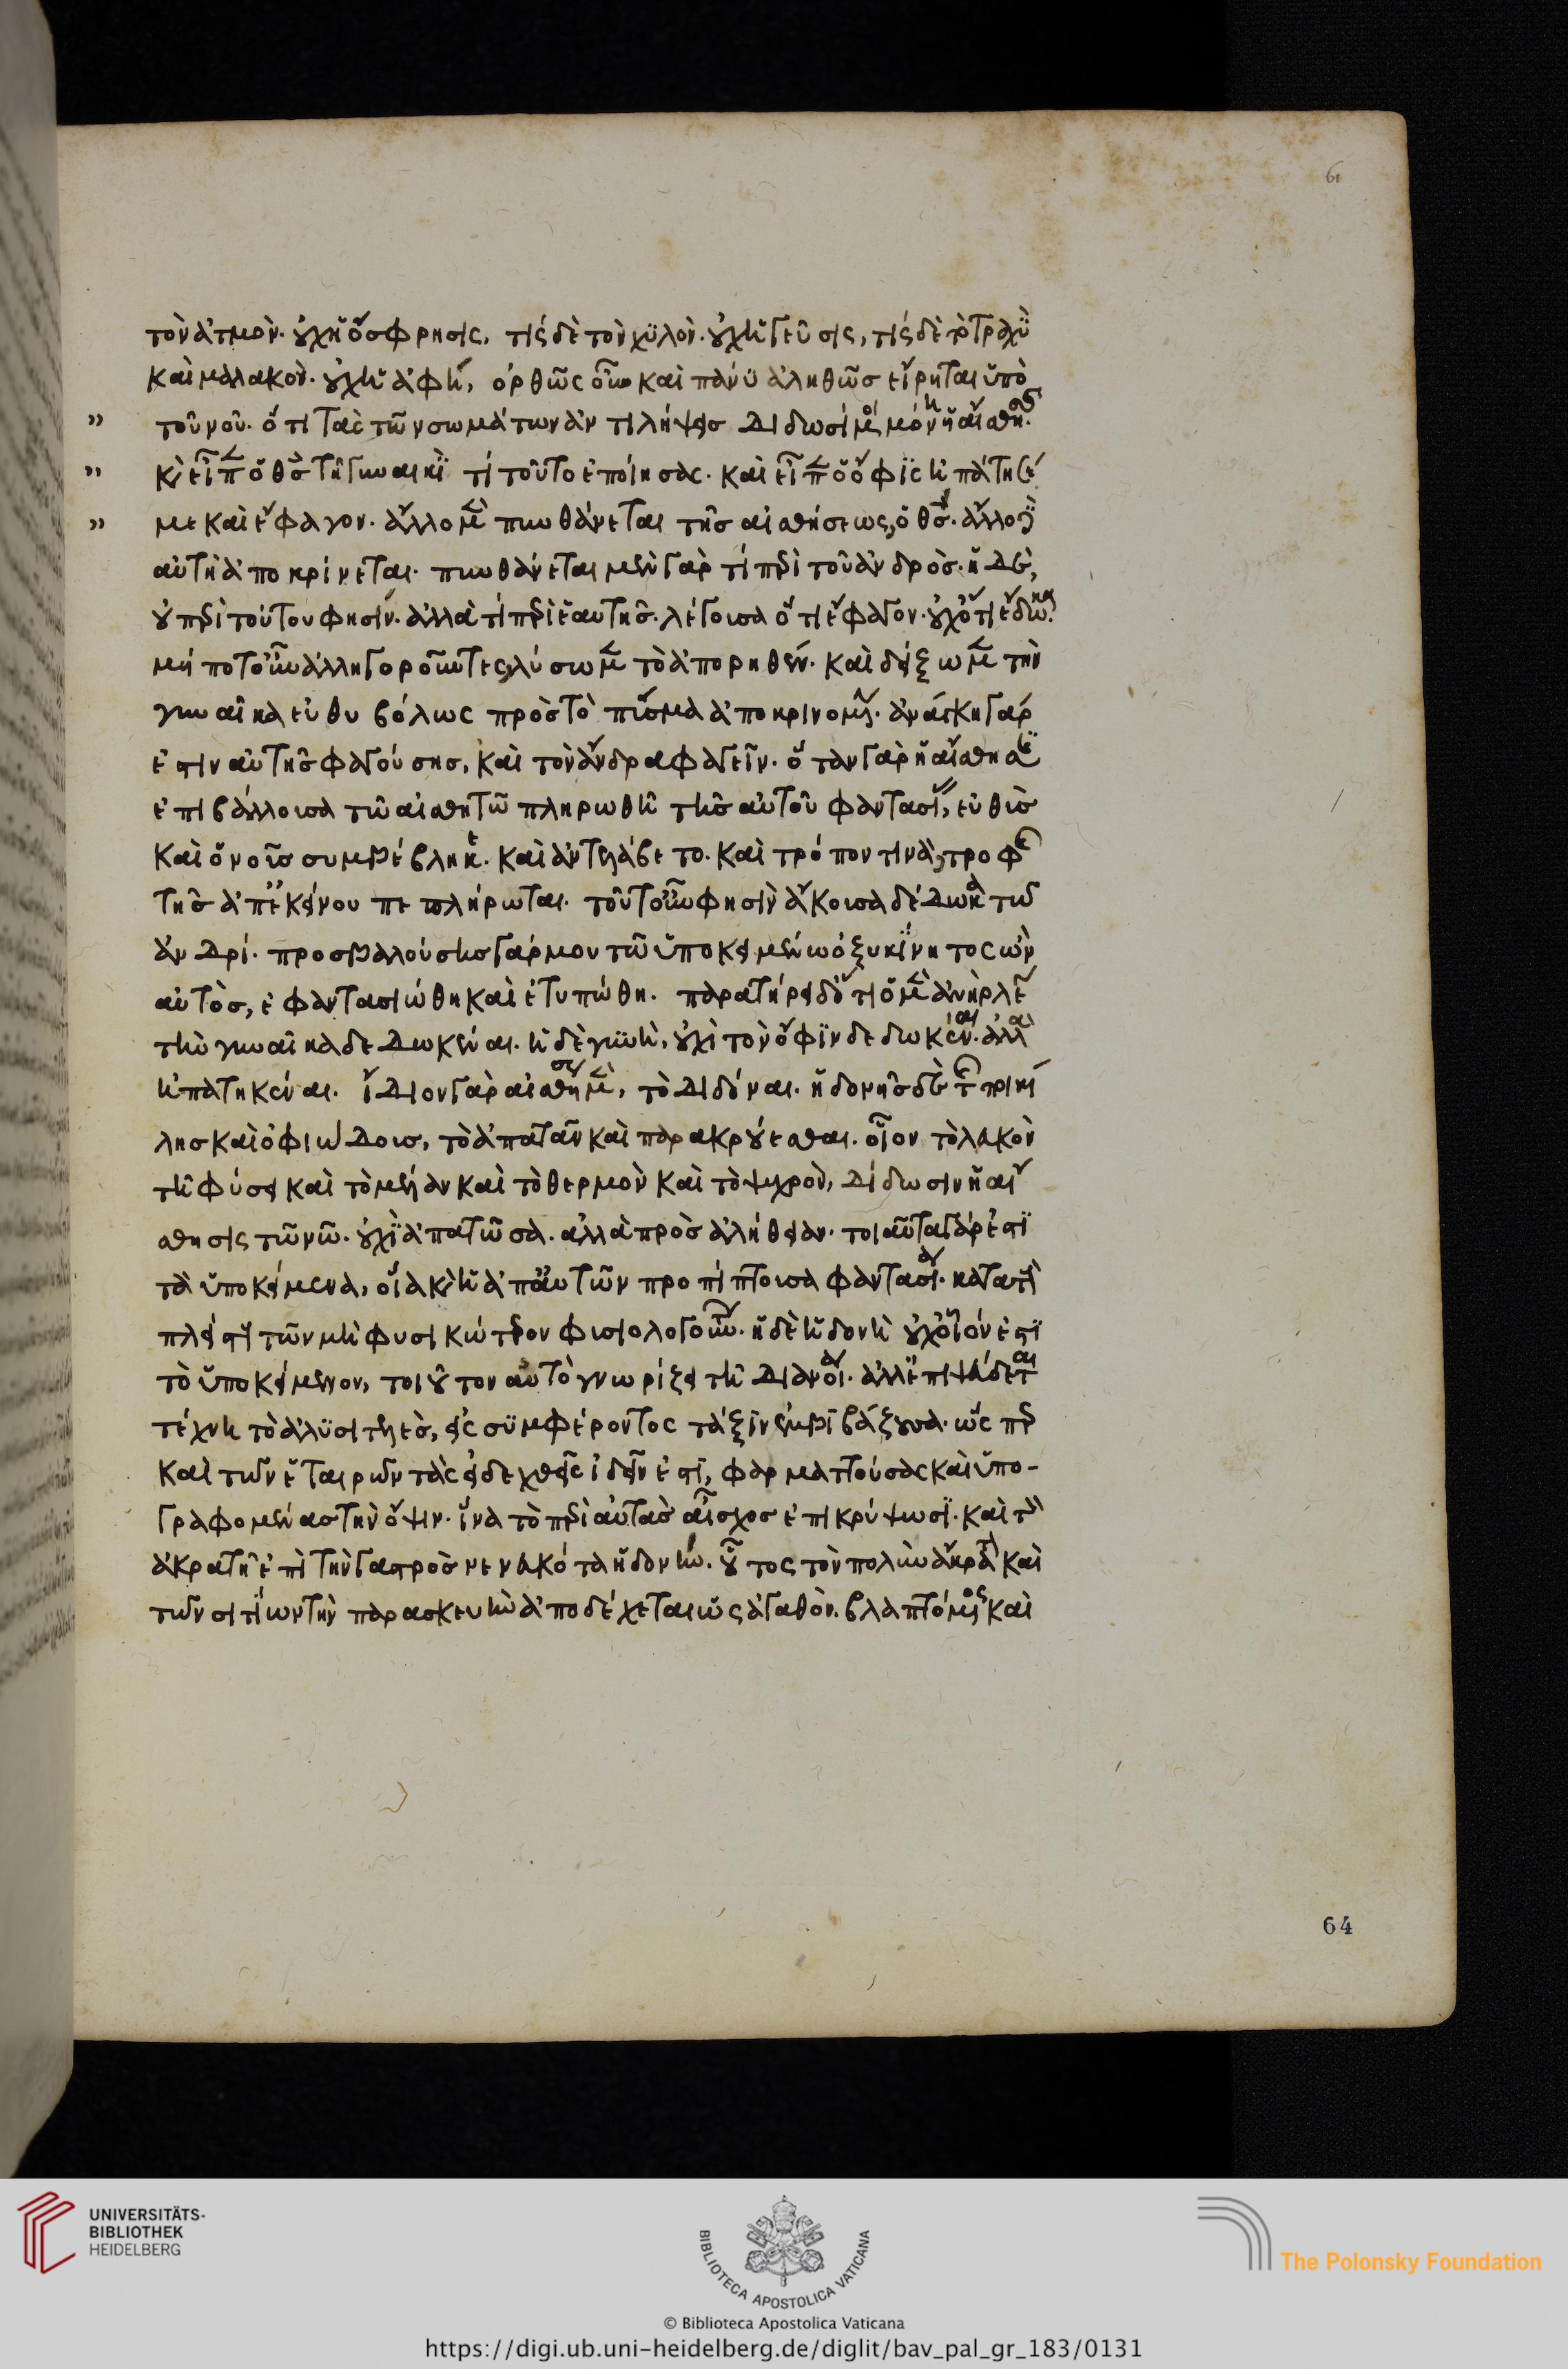 61
τὸν ἀτμόν· οὐχ ἡ ὄσφρησις, τίς δὲ τὸν χυλόν· οὐχ ἡ γεῦσις, τίς δὲ τὸ τραχὺ
καὶ μαλακόν· οὐχ ἡ ἁφή, ὀρθῶς οὖν καὶ πάνυ ἀληθῶς εἴρηται ὑπὸ
τοῦ νοῦ· ὅτι τὰς τῶν σωμάτων ἀντιλήψεις δίδωσί μοι μόνη ἡ αἴσθησις·
καὶ εἶπεν ὁ θς τῇ γυναικί τί τοῦτο ἐποίησας· καὶ εἶπεν ὁ ὄφις ἠπάτησέ
με καὶ ἔφαγον· ἄλλο μὲν πυνθάνεται τῆς αἰσθήσεως, ὁ θς· ἄλλο δὲ
αὐτὴ ἀποκρίνεται· πυνθάνεται μὲν γὰρ τί περὶ τοῦ ἀνδρός· ἡ δὲ,
οὐ περὶ τούτου φησίν· ἀλλὰ τί περὶ ἑαυτῆς· λέγουσα ὅτι ἔφαγον· οὐχ ὅτι ἔδωκα·
μή ποτ' οὖν ἀλληγοροῦντες, λύσωμεν τὸ ἀπορηθέν· καὶ δείξωμεν τὴν
γυναῖκα εὐθυβόλως πρὸς τὸ πύσμα ἀποκρινομένην· ἀνάγκη γάρ
ἐστιν αὐτῆς φαγούσης, καὶ τὸν ἄνδρα φαγεῖν· ὅταν γὰρ ἡ αἴσθησις
ἐπιβάλλουσα τῷ αἰσθητῷ πληρωθῇ τῆς αὐτοῦ φαντασίας, εὐθὺς
καὶ ὁ νοῦς συμβέβληκε· καὶ ἀντελάβετο· καὶ τρόπον τινὰ, τροφῆς
τῆς ἀπ' ἐκείνου πεπλήρωται· τοῦτ' οὖν φησὶν ἄκουσα δέδωκα τῷ
ἀνδρί· προσβαλούσης γάρ μου τῷ ὑποκειμένῳ ὀξυκίνητος ὢν
αὐτός, ἐφαντασιώθη καὶ ἐτυπώθη· παρατήρει δ' ὅτι ὁ μὲν ἀνὴρ λέγει
τὴν γυναῖκα δεδωκέναι· ἡ δὲ γυνὴ, οὐχὶ τὸν ὄφιν δεδωκέναι· ἀλλὰ
ἠπατηκέναι· ἴδιον γὰρ αἰσθήσεως μὲν, τὸ διδόναι· ἡδονῆς δὲ τῆς ποικί
λης καὶ ὀφιώδους, τὸ ἀπατᾶν καὶ παρακρούεσθαι· οἷον τὸ λευκὸν
τῇ φύσει καὶ τὸ μέλαν καὶ τὸ θερμὸν καὶ τὸ ψυχρὸν, δίδωσιν ἡ αἴ
σθησις τῷ νῷ· οὐχὶ ἀπατῶσα· ἀλλὰ πρὸς ἀλήθειαν· τοιαῦτα γάρ ἐστι
τὰ ὑποκείμενα, οἵα καὶ ἡ ἀπ' αὐτῶν προπίπτουσα φαντασία· κατὰ τοὺς
πλείστους τῶν μὴ φυσικώτερον φυσιολογούντων· ἡ δὲ ἡδονὴ οὐχ οἷόν ἐστι
τὸ ὑποκείμενον, τοιοῦτον αὐτὸ γνωρίζει τῇ διανοίᾳ· ἀλλ' ἐπιψεύδεται
τέχνη τὸ ἀλυσιτελὲς, εἰς συμφέροντος τάξιν ἐμβιβάζουσα· ὥσπερ
καὶ τῶν ἑταιρῶν τὰς εἰδεχθεῖς ἰδεῖν ἐστι, φαρματτούσας καὶ ὑπο-
γραφομένας τὴν ὄψιν· ἵνα τὸ περὶ αὐτὰς αἶσχος ἐπικρύψωσι· καὶ τὸν
ἀκρατῆ ἐπὶ τὴν γαστρὸς νενευκότα ἡδονήν· οὗτος τὸν πολὺν ἄκρατον καὶ
τῶν σιτίων τὴν παρασκευὴν ἀποδέχεται ὡς ἀγαθόν· βλαπτόμενος καὶ
64
UNIVERSITÄTS-
BIBLIOTHEK
HEIDELBERG
BIBLIOTECA APOSTOLICA VATICANA
The Polonsky Foundation
© Biblioteca Apostolica Vaticana
https://digi.ub.uni-heidelberg.de/diglit/bav_pal_gr_183/0131